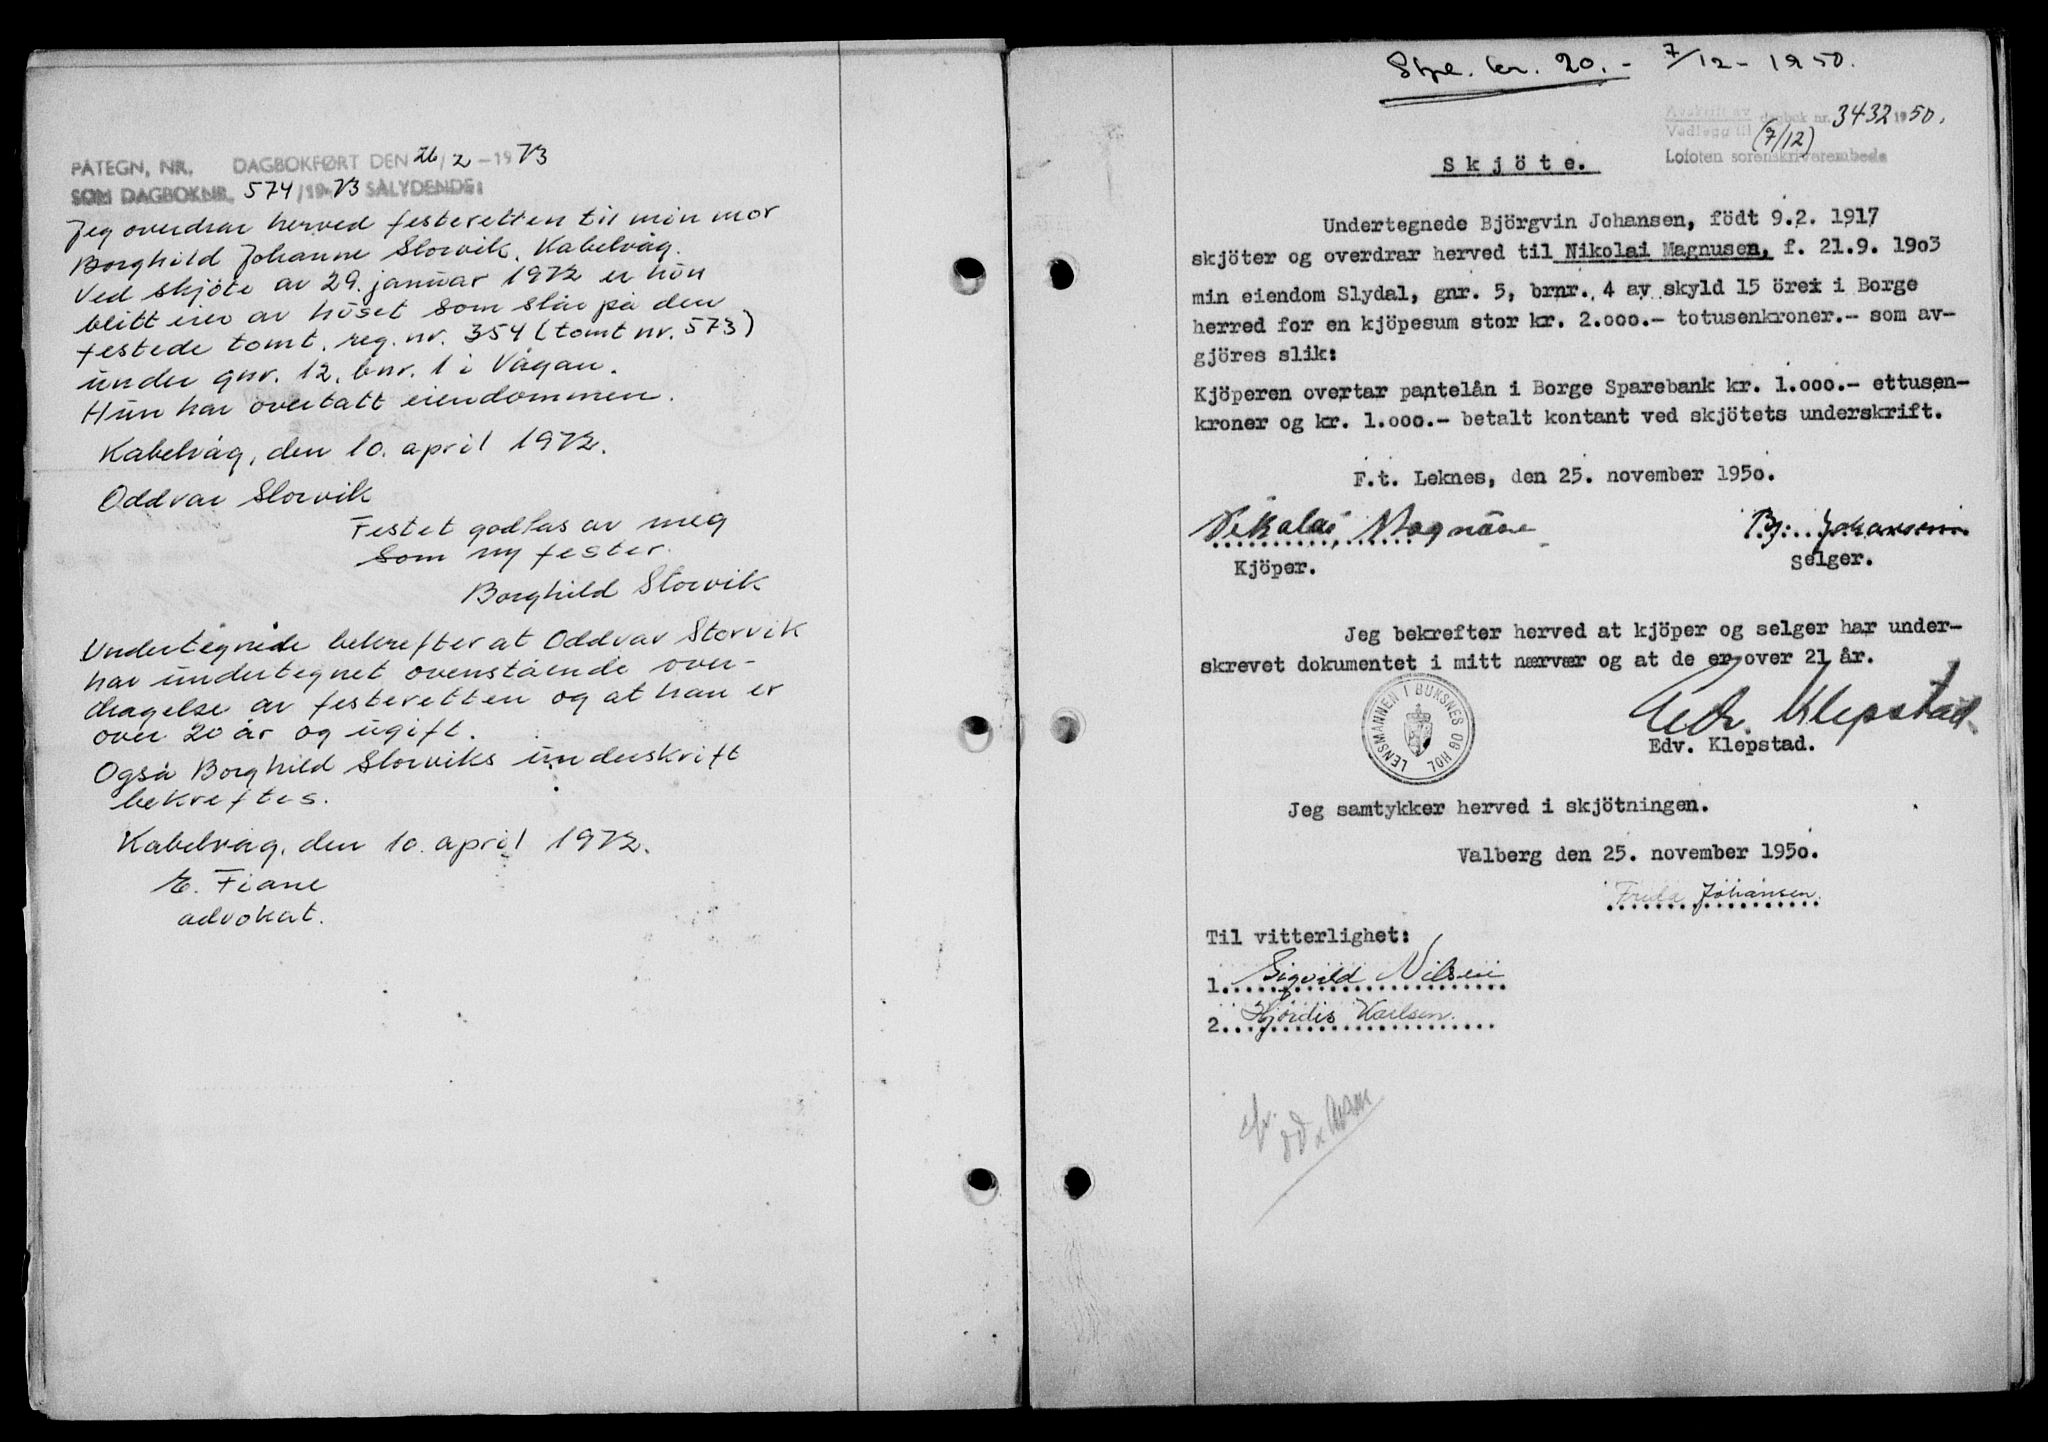 PÅTEGN. NR. DAGBOKFØRT DEN 26/2-1973
SOM DAGBOKNR. 574/1973 SÅLYDENDE:
Jeg overdrar herved festeretten til min mor
Borghild Johanne Storvik, Kabelvåg.
Ved skjöte av 29. januar 1972 er hun
blitt eier av huset som står på den
festede tomt, reg. nr. 354 (tomt nr. 573)
under gnr. 12, bnr. 1 i Vågan.
Hun har overtatt eiendommen.
Kabelvåg, den 10. april 1972.
Oddvar Storvik
Festet godtas av meg
som ny fester.
Borghild Storvik
Undertegnede bekrefter at Oddvar Storvik
har undertegnet ovenstående over-
dragelse av festeretten og at han er
over 20 år og ugift.
Også Borghild Storviks underskrift
bekreftes.
Kabelvåg, den 10. april 1972.
E. Fiane
advokat.
Stpl. kr. 20.- 7/12-1950.
Avskrift av
Vedlegg til dagbok nr. 3432 1950.
(7/12)
Lofoten sorenskriverembede
Skjöte.
Undertegnede Björgvin Johansen, födt 9.2. 1917
skjöter og overdrar herved til Nikolai Magnusen, f. 21.9. 1903
min eiendom Slydal, gnr. 5, brnr. 4 av skyld 15 örei i Borge
herred for en kjöpesum stor kr. 2.000.- totusenkroner.- som av-
gjöres slik:
Kjöperen overtar pantelån i Borge Sparebank kr. 1.000.- ettusen-
kroner og kr. 1.000.- betalt kontant ved skjötets underskrift.
F.t. Leknes, den 25. november 1950.
Nikolai Magnusen Bj. Johansen
Kjöper. selger.
Jeg bekrefter herved at kjöper og selger har under-
skrevet dokumentet i mitt nærvær og at de er over 21 år.
LENSMANNEN I BUKSNES OG HOL
Edv. Klepstad
Edv. Klepstad.
Jeg samtykker herved i skjötningen.
Valberg den 25. november 1950.
Frida Johansen.
Til vitterlighet:
1. Sigvald Nilsen
2. Hjördis Karlsen.